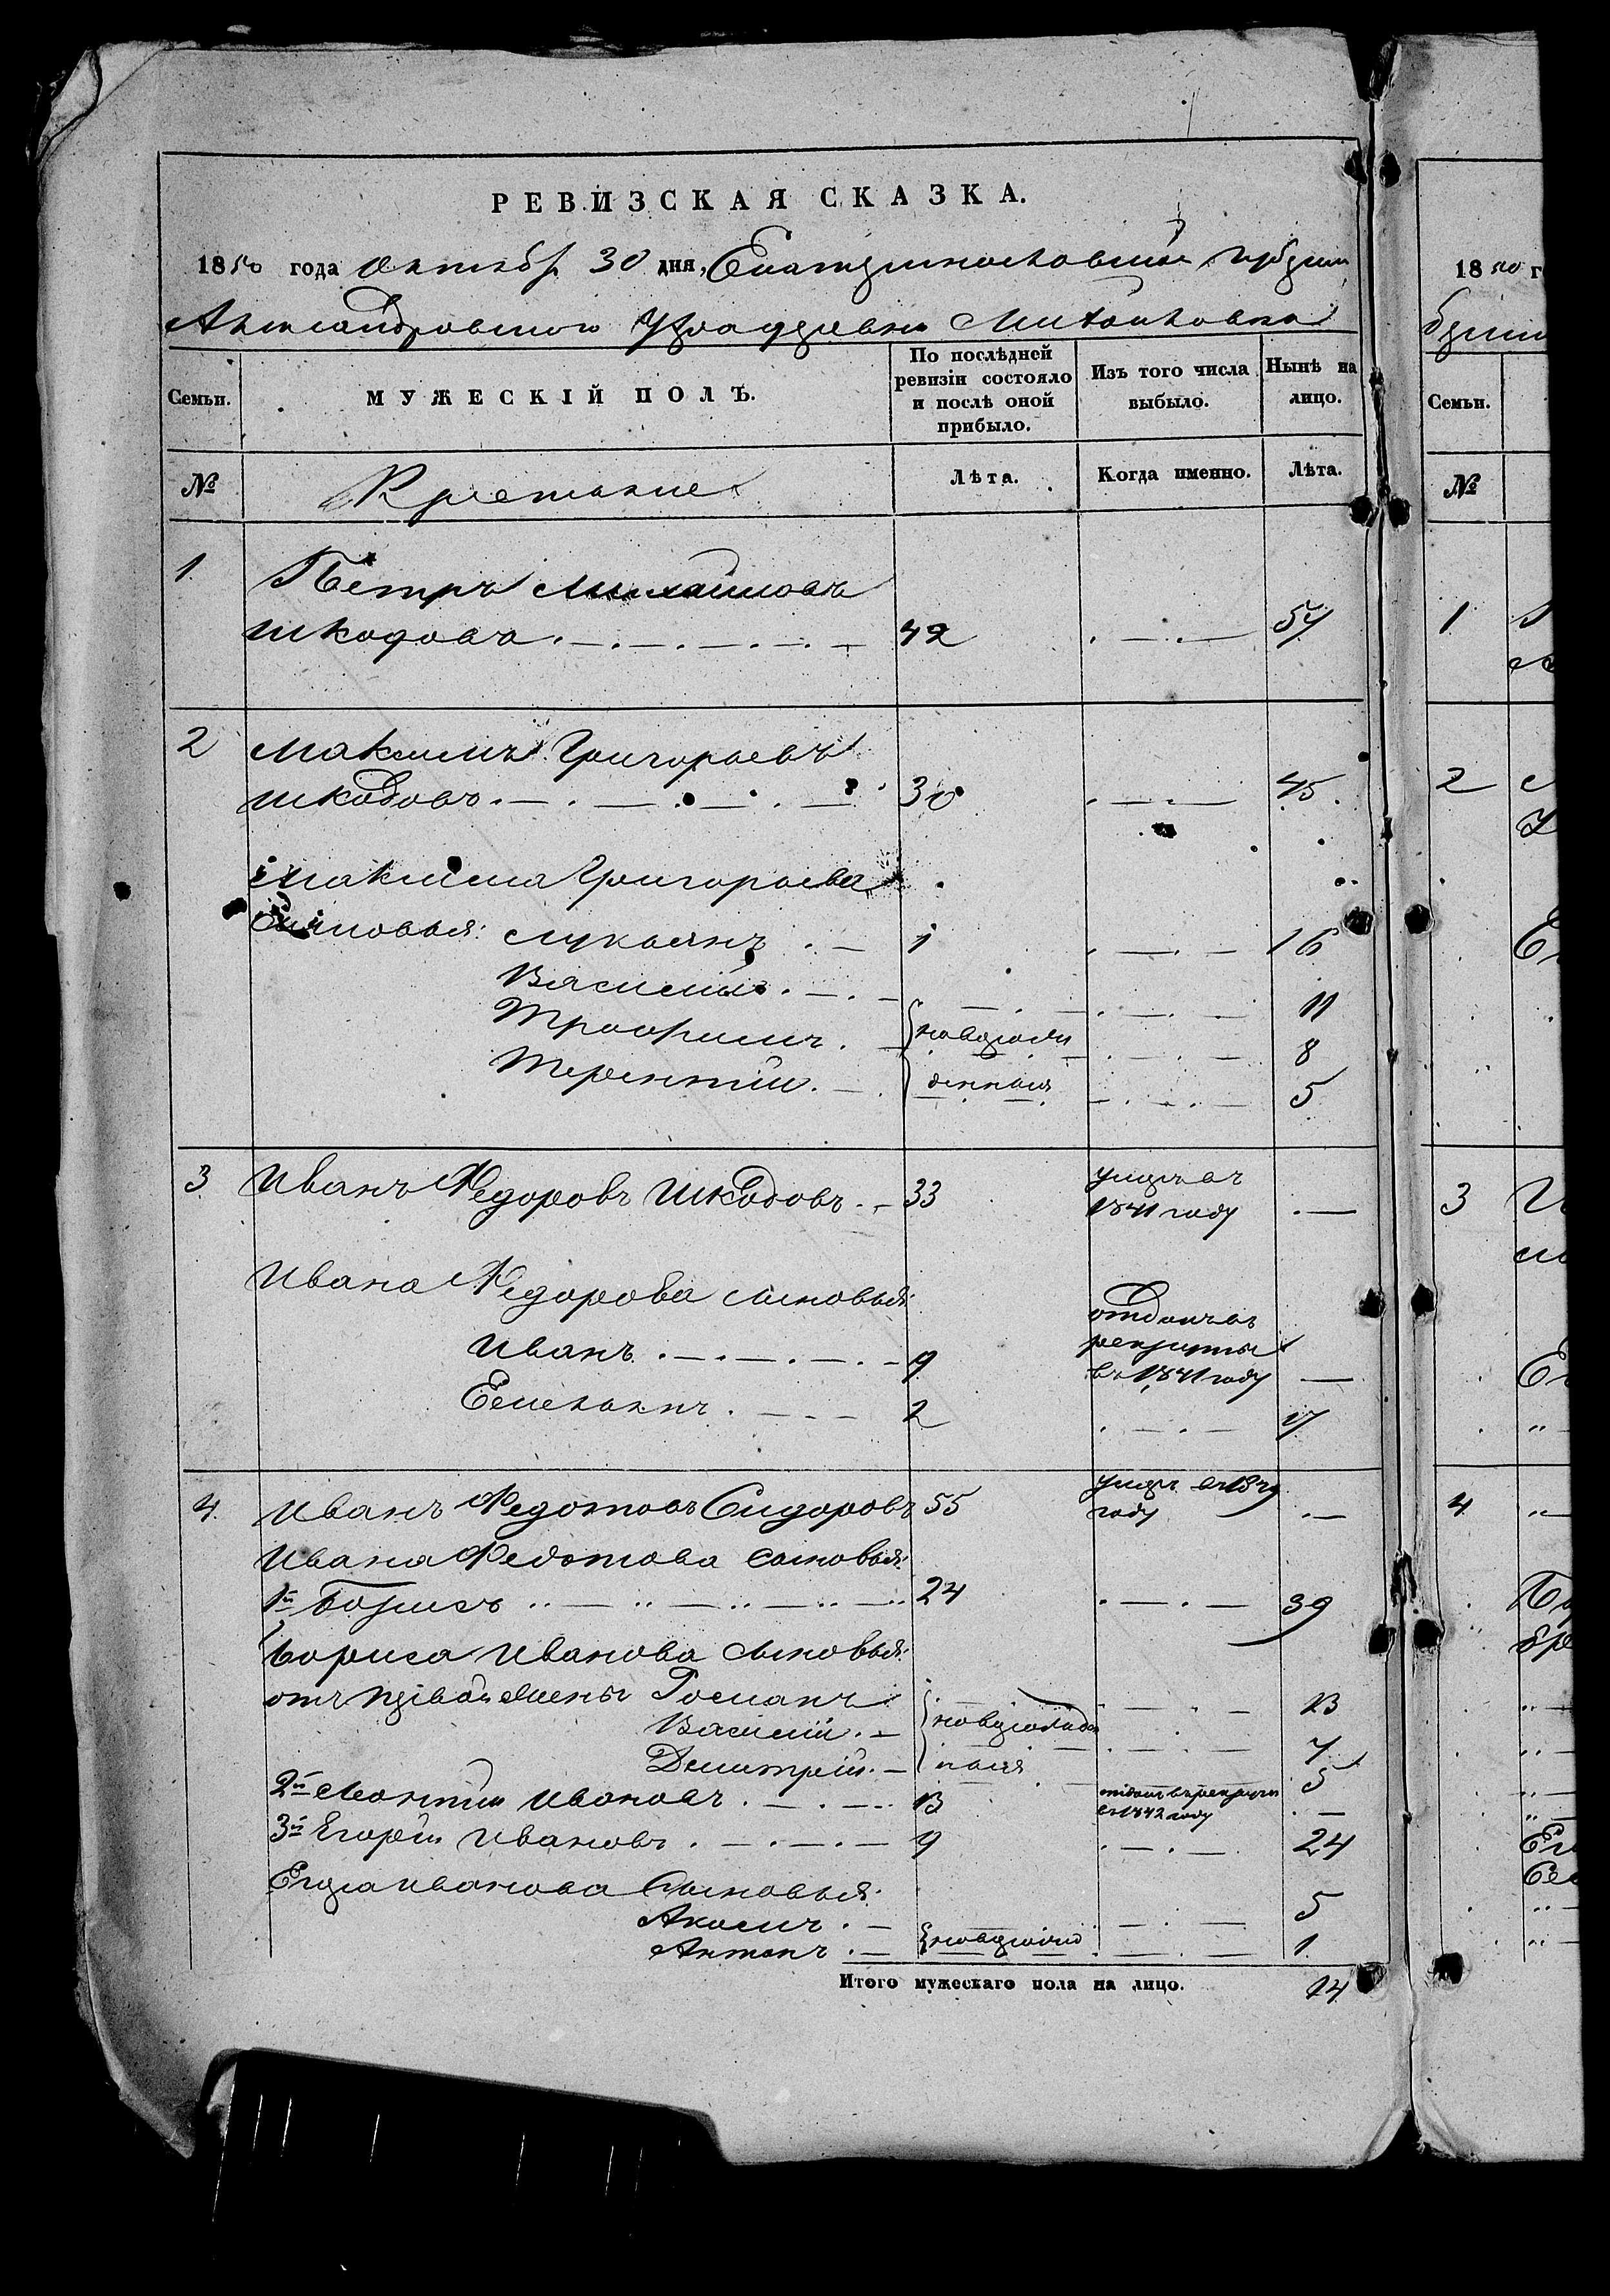 РЕВИЗСКАЯ СКАЗКА.
1850 года Октября 30 дня, Екатеринославской губернии
Александровского Уезда деревни Михайловки
Семьи.
МУЖЕСКІЙ ПОЛЪ.
По послѣдней ревизіи состояло и послѣ оной прибыло.
Изъ того числа выбыло.
Нынѣ на лицо.
№
Крестьяне
Лѣта.
Когда именно.
Лѣта.
1. Петръ Михайловъ
Шкодовъ 42 57
2 Максимъ Григорьевъ
Шкодовъ 30 45
Максима Григорьева
сыновья: Лукьянъ 1 16
Василий 11
Трофимъ новорож 8
Терентий денныя 5
3. Иванъ Федоровъ Шкодовъ 33 умеръ въ 1841 году
Ивана Федорова сыновья:
Иванъ 9 отданъ въ рекруты въ 1841 году
Емельянъ 2 17
4. Иванъ Федотовъ Сидоровъ 55 умеръ въ 1849 году
Ивана Федотова сыновья:
1й Борисъ 24 39
Бориса Иванова сыновья:
отъ первой жены Романъ 13
Василий новорожден 7
Демитрий ныя 5
2й Леонтий Ивановъ 13 отданъ въ рекруты въ 1842 году
3й Егорий Ивановъ 9 24
Егора Иванова Сыновья: 5
Акимъ
Антонъ 1
Итого мужескаго пола на лицо. 14
18 50 г
Семьи.
№
1
2
3
4